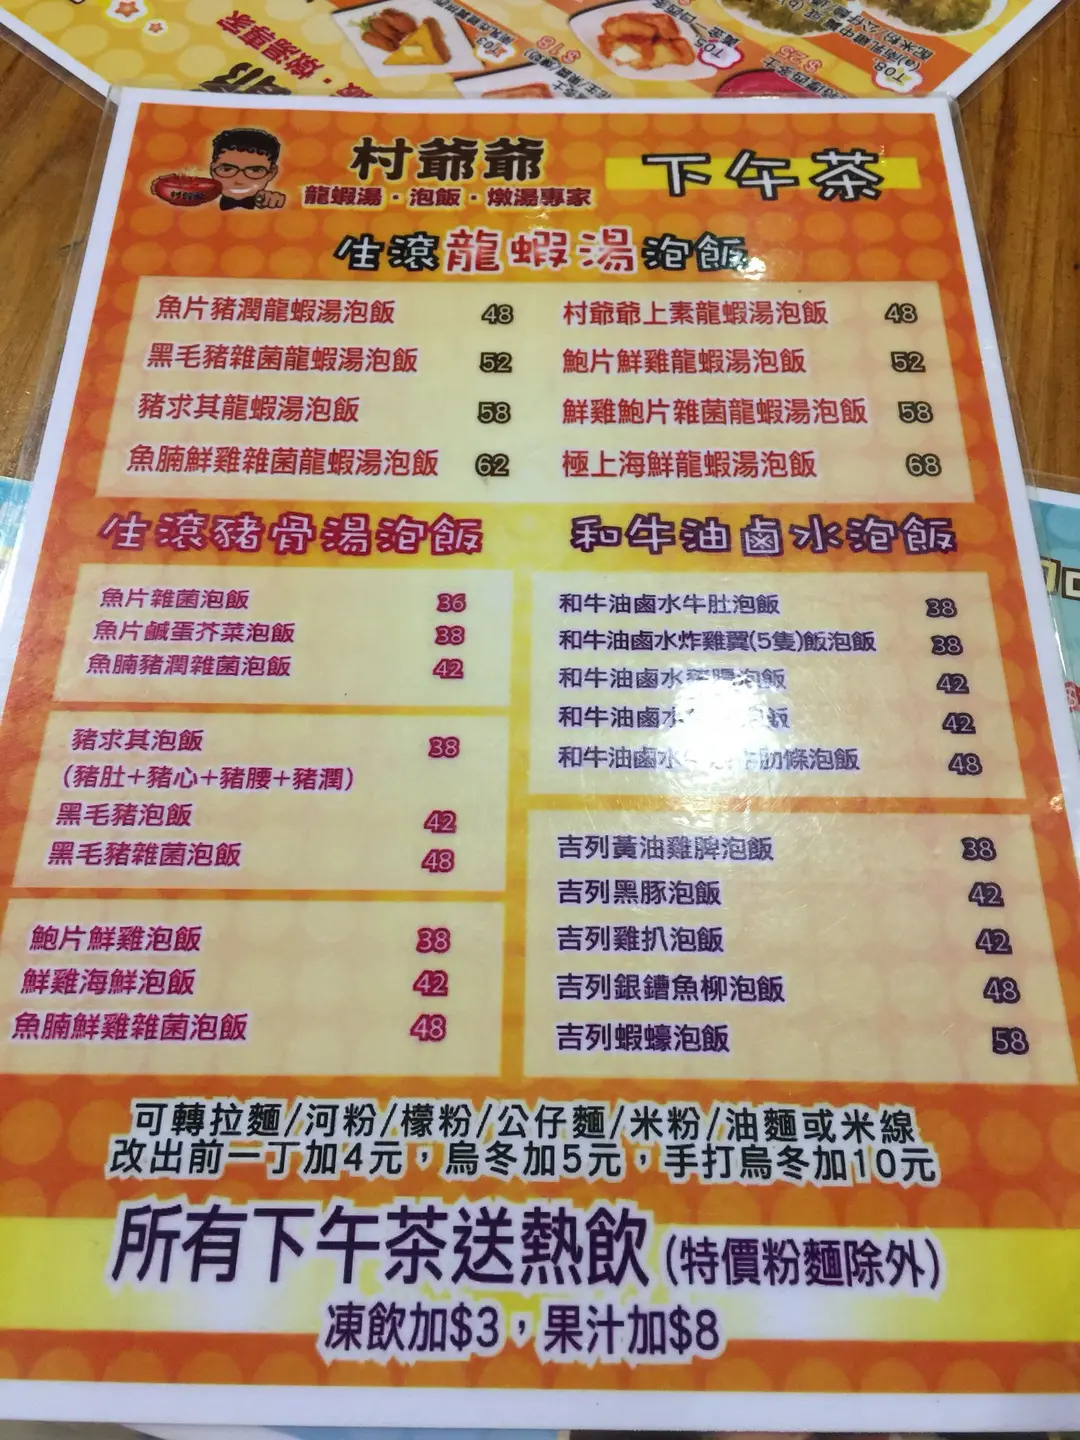 村爺爺
龍蝦湯·泡飯·燉湯專家
下午茶
生滾龍蝦湯泡飯
魚片豬潤龍蝦湯泡飯 48
黑毛豬雜菌龍蝦湯泡飯 52
豬求其龍蝦湯泡飯 58
魚腩鮮雞雜菌龍蝦湯泡飯 62
村爺爺上素龍蝦湯泡飯 48
鮑片鮮雞龍蝦湯泡飯 52
鮮雞鮑片雜菌龍蝦湯泡飯 58
極上海鮮龍蝦湯泡飯 68
生滾豬骨湯泡飯
魚片雜菌泡飯 36
魚片鹹蛋芥菜泡飯 38
魚腩豬潤雜菌泡飯 42
豬求其泡飯 38
(豬肚+豬心+豬腰+豬潤)
黑毛豬泡飯 42
黑毛豬雜菌泡飯 48
鮑片鮮雞泡飯 38
鮮雞海鮮泡飯 42
魚腩鮮雞雜菌泡飯 48
和牛油鹵水泡飯
和牛油鹵水牛肚泡飯 38
和牛油鹵水炸雞翼(5隻)飯泡飯 38
和牛油鹵水泡飯 42
和牛油鹵水飯 42
和牛油鹵水肋條泡飯 48
吉列黃油雞脾泡飯 38
吉列黑豚泡飯 42
吉列雞扒泡飯 42
吉列銀鱈魚柳泡飯 48
吉列蝦蠔泡飯 58
可轉拉麵/河粉/檬粉/公仔麵/米粉/油麵或米線
改出前一丁加4元，烏冬加5元，手打烏冬加10元
所有下午茶送熱飲(特價粉麵除外)
凍飲加$3，果汁加$8